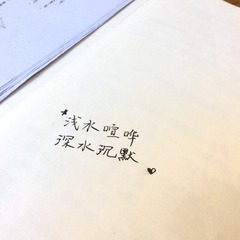 浅水喧哗
深水沉默